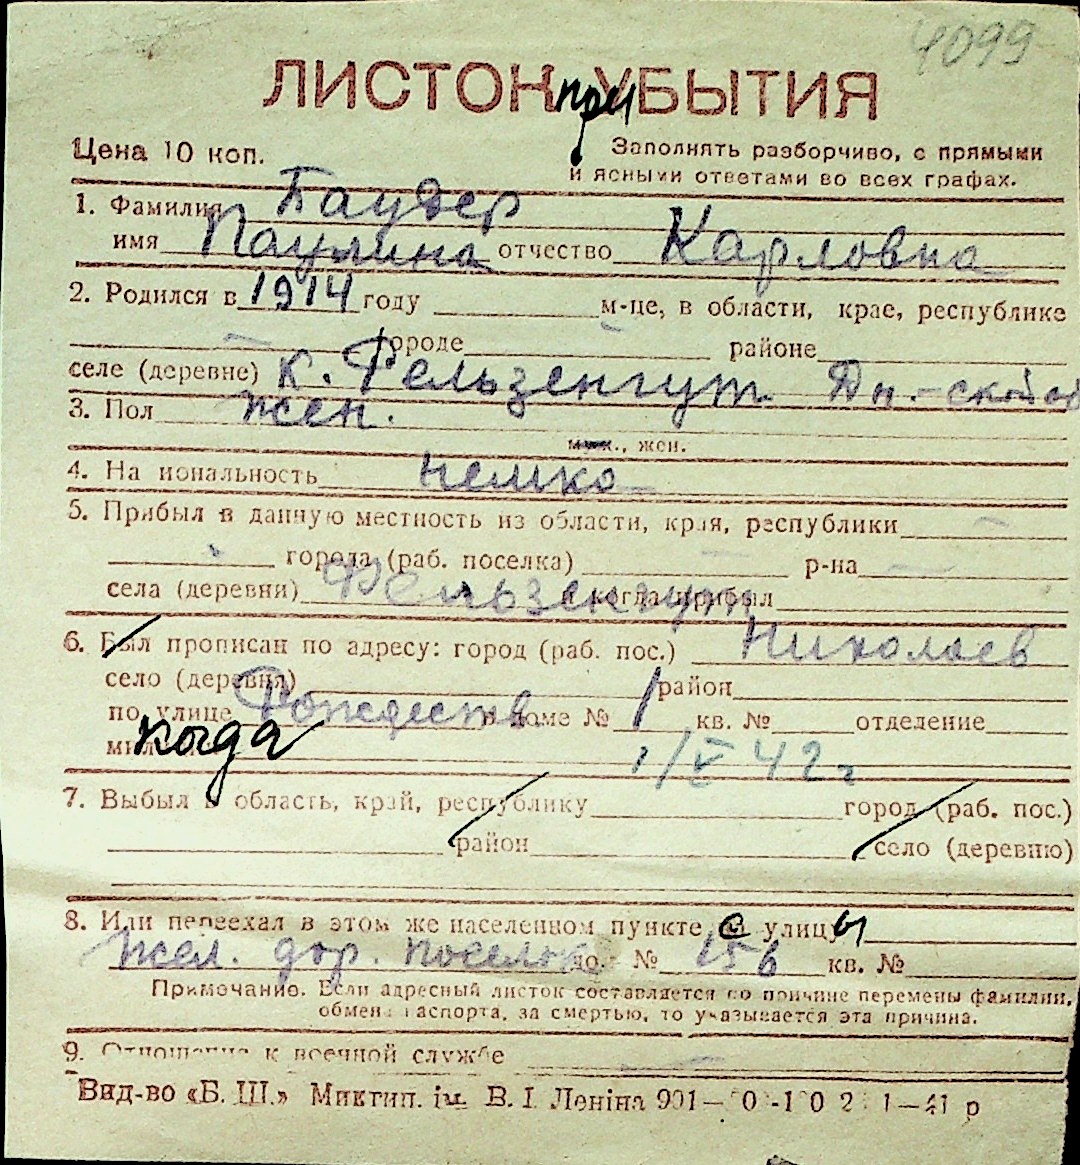 4099
ЛИСТОК при УБЫТИЯ
Цена 10 коп.
Заполнять разборчиво, с прямыми
и ясными ответами во всех графах.
1. Фамилия Баудер
имя Паулина отчество Карловна
2. Родился в 1914 году м-це, в области, крае, республике
городе районе
селе (деревне) к. Фельзенгут Дн.-ской об
3. Пол жен.
муж., жен.
4. На иональность немка
5. Прибыл в данную местность из области, края, республики
города (раб. поселка) р-на
села (деревни) Фельзенгут и когда прибыл
6. Был прописан по адресу: город (раб. пос.) Николаев
село (деревня) район
по улице Рождеств в доме № 1 кв. № отделение
мил когда 1/V 42 г
7. Выбыл в область, край, республику город (раб. пос.)
район село (деревню)
8. Или переехал в этом же населенном пункте с улицы
жел. дор. поселок № 156 кв. №
Примечание. Если адресный листок составляется по причине перемены фамилии,
обмена паспорта, за смертью, то указывается эта причина.
9. Отношение к военной службе
Вид-во «Б. Ш.» Миктип. ім. В. І. Леніна 901—